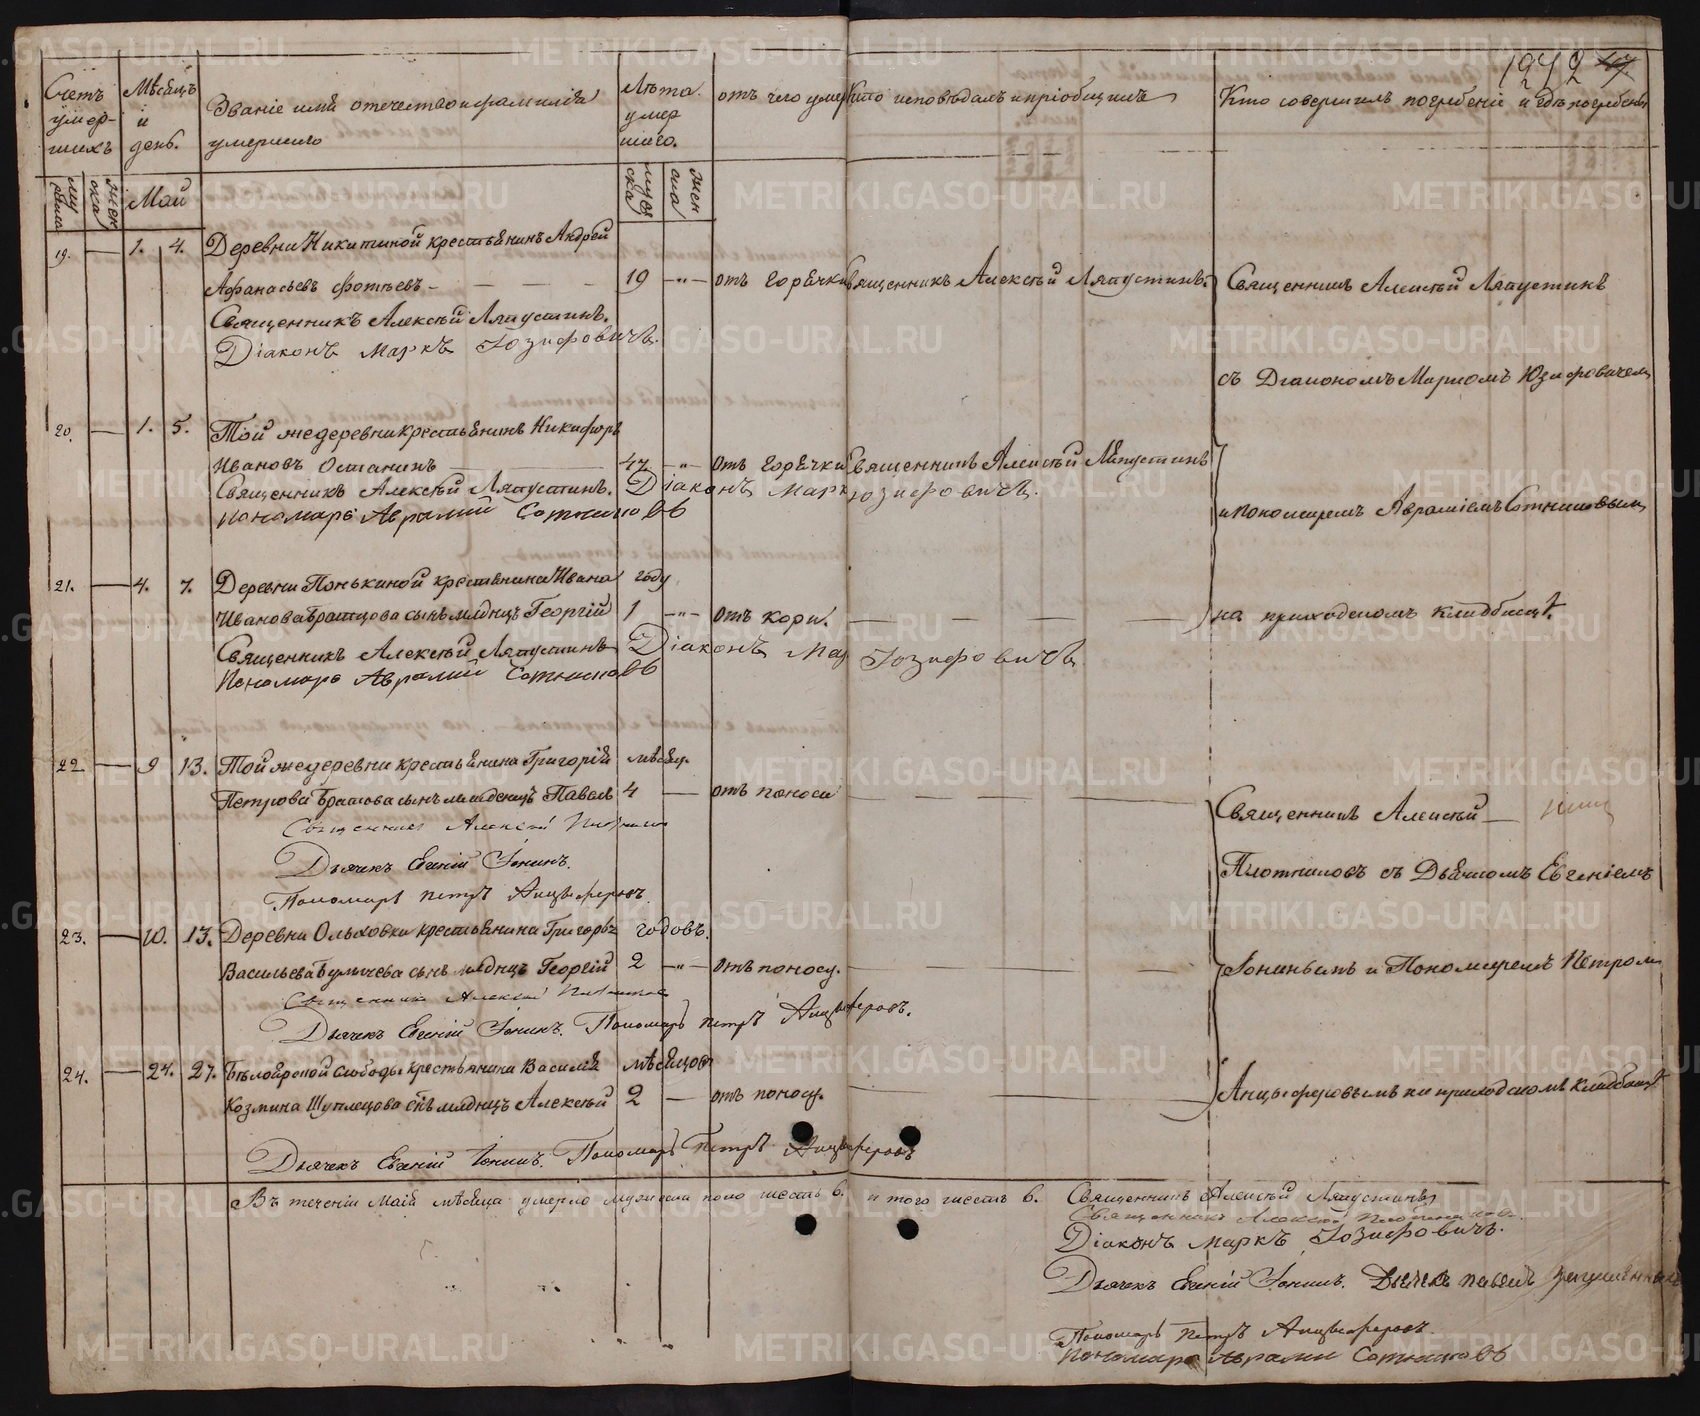 1942
Счетъ умер-шихъ
Мѣсяцъ и день.
Званіе имя отечество и фамилія умершаго
Лѣта умер шаго.
отъ чего умеръ
Кто исповѣдалъ и пріобщилъ
Кто совершилъ погребеніе и гдѣ погребены
муж
жен ска
Май
муж ска
жен ска
19. — 1. 4. Деревни Никитиной крестьянинъ Андрей
Афанасьевъ Фотѣевъ — 19 — отъ горячки Священникъ Алексѣй Ляпустинъ. Священникъ Алексѣй Ляпустинъ
Священникъ Алексѣй Ляпустинъ.
Діаконъ Маркъ Іозифовичъ.
съ Діакономъ Маркомъ Юзифовичемъ
20. — 1. 5. Той же деревни крестьянинъ Никифоръ
Ивановъ Останинъ 47 — отъ горячки Священникъ Алексѣй Ляпустинъ
Священникъ Алексѣй Ляпустинъ. Діаконъ Маркъ Юзифовичъ.
Пономарь Аврамій Сотниковъ
и пономаремъ Аврамiемъ Сотниковымъ
21. — 4. 7. Деревни Понькиной крестьянина Ивана году
Иванова Братцова сынъ младнцъ Георгій 1 — отъ кори. — на приходскомъ кладбищѣ.
Священникъ Алексѣй Ляпустинъ Діаконъ Мар Іозифовичъ
Пономарь Аврамій Сотниковъ
22 — 9 13. Той же деревни крестьянина Григорія мѣсяц.
Петрова сынъ младенецъ Павелъ 4 — отъ поноса
Священникъ Алексѣй Плотников
Священникъ Алексѣй —
Дьячекъ Евгеній Іонинъ.
Плотниковъ съ Дьячкомъ Евгеніемъ
Пономарь Петръ Анцыферовъ.
23. — 10. 13. Деревни Ольховки крестьянина Григорья годовъ.
Васильева сынъ младнцъ Георгій 2 — отъ поносу. — Іонинымъ и Пономаремъ Петромъ
Священникъ Алексѣй Плотников
Дьячекъ Евгеній Іонинъ. Пономарь Петръ Анцыферовъ.
24. — 24. 27. Бѣлоярской слободы крестьянина Василія мѣсяцовъ
Козмина Шуплецова сынъ младнцъ Алексѣй 2 — отъ поносу. — Анцыферовымъ на приходскомъ кладбищѣ
Дьячекъ Евгеній Іонинъ. Пономарь Петръ Анцыферовъ
Въ теченіи Маія мѣсяца умерло мужеска пола шесть 6. и того шесть 6. Священникъ Алексѣй Ляпустинъ
Священникъ Алексѣй Плотников.
Діаконъ Маркъ Іозифовичъ.
Дьячекъ Евгеній Іонинъ. Дьячекъ Павелъ
Пономарь Петръ Анцыферовъ.
Пономарь Аврамій Сотниковъ
METRIKI.GASO-URAL.RU